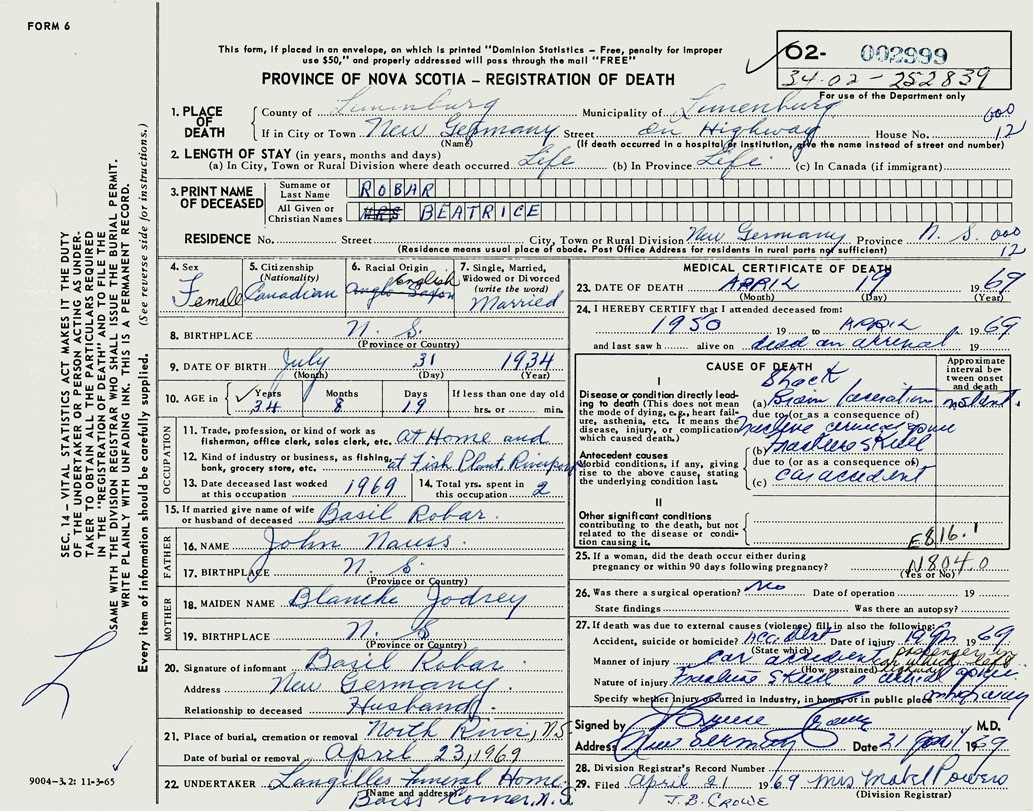 FORM 6
This form, if placed in an envelope, on which is printed "Dominion Statistics – Free, penalty for improper
use $50," and properly addressed will pass through the mail "FREE"
PROVINCE OF NOVA SCOTIA – REGISTRATION OF DEATH
02- 002999
34-02-252839
For use of the Department only
1. PLACE OF DEATH
County of Lunenburg Municipality of Lunenburg 000
If in City or Town New Germany Street on Highway House No. 12
(Name) (If death occurred in a hospital or institution, give the name instead of street and number)
2. LENGTH OF STAY (in years, months and days)
(a) In City, Town or Rural Division where death occurred Life (b) In Province Life. (c) In Canada (if immigrant)
3. PRINT NAME OF DECEASED
Surname or Last Name ROBAR
All Given or Christian Names MRS BEATRICE
RESIDENCE No. Street City, Town or Rural Division New Germany Province N. S. 000
(Residence means usual place of abode. Post Office Address for residents in rural parts not sufficient) 12
4. Sex Female
5. Citizenship (Nationality) Canadian
6. Racial Origin English Anglo Saxon
7. Single, Married, Widowed or Divorced (write the word) Married
8. BIRTHPLACE N. S.
(Province or Country)
9. DATE OF BIRTH July 31 1934
(Month) (Day) (Year)
10. AGE in Years Months Days If less than one day old
34 8 19 hrs. or min.
OCCUPATION
11. Trade, profession or kind of work as fisherman, office clerk, sales clerk, etc. at Home and
12. Kind of industry or business, as fishing, bank, grocery store, etc. at Fish Plant, Riverport
13. Date deceased last worked at this occupation 1969
14. Total yrs. spent in this occupation 2
15. If married give name of wife or husband of deceased Basil Robar.
FATHER
16. NAME John Nauss.
17. BIRTHPLACE N. S.
(Province or Country)
MOTHER
18. MAIDEN NAME Blanche Jodrey
19. BIRTHPLACE N. S
(Province or Country)
20. Signature of informant Basil Robar.
Address New Germany.
Relationship to deceased Husband.
21. Place of burial, cremation or removal North River, N.S.
Date of burial or removal April 23, 1969
22. UNDERTAKER Langilles Funeral Home.
(Name and address)
Barss Corner, N.S.
MEDICAL CERTIFICATE OF DEATH
23. DATE OF DEATH APRIL 19 1969
(Month) (Day) (Year)
24. I HEREBY CERTIFY that I attended deceased from:
1950 19 to APRIL 19 1969
and last saw h alive on dead on arrival 19
CAUSE OF DEATH
Approximate interval between onset and death
I
Disease or condition directly leading to death (This does not mean the mode of dying, e.g., heart failure, asthenia, etc. It means the disease, injury, or complication which caused death.)
Shock
(a) Brain laceration instant.
due to (or as a consequence of)
Fracture cervical spine
Antecedent causes
Morbid conditions, if any, giving rise to the above cause, stating the underlying condition last.
(b) Fractures Skull
due to (or as a consequence of)
(c) Car accident
II
Other significant conditions contributing to the death, but not related to the disease or condition causing it.
E816.1
25. If a woman, did the death occur either during pregnancy or within 90 days following pregnancy? N804.0
(Yes or No)
26. Was there a surgical operation? No Date of operation 19
State findings Was there an autopsy?
27. If death was due to external causes (violence) fill in also the following:
Accident, suicide or homicide? Accident Date of injury 19 1969
(State which)
Manner of injury car accident passenger in car which left highway
(How sustained)
Nature of injury Fracture Skull & cervical spine
Specify whether injury occurred in Industry, in home, or in public place on highway
Signed by M.D.
Address New Germany Date 21 April
28. Division Registrar's Record Number
29. Filed April 21 1969 Mrs Mabel Powers
(Division Registrar)
J.B. CROWE
SEC. 14 – VITAL STATISTICS ACT MAKES IT THE DUTY
OF THE UNDERTAKER OR PERSON ACTING AS UNDER-
TAKER TO OBTAIN ALL THE PARTICULARS REQUIRED
IN THE "REGISTRATION OF DEATH" AND TO FILE THE
SAME WITH THE DIVISION REGISTRAR WHO SHALL ISSUE THE BURIAL PERMIT.
WRITE PLAINLY WITH UNFADING INK. THIS IS A PERMANENT RECORD.
Every item of information should be carefully supplied. (See reverse side for instructions.)
9004-3.2: 11-3-65